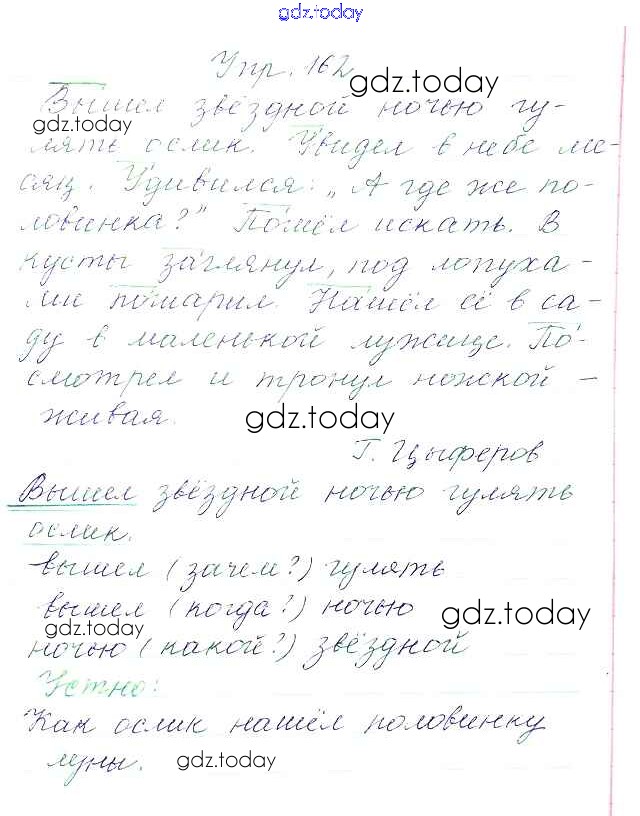 gdz.today
Упр. 162
gdz.today
Вышел звёздной ночью гу-
gdz.today
лять ослик. Увидел в небе ме-
сяц. Удивился: „А где же по-
ловинка?" Пошёл искать. В
кусты заглянул, под лопуха-
ми пошарил. Нашёл её в са-
ду в маленькой лужице. По-
смотрел и тронул ножкой –
живая.
gdz.today
Г. Цыферов
Вышел звёздной ночью гулять
ослик.
вышел (зачем?) гулять
вышел (когда?) ночью
gdz.today
gdz.today
ночью (какой?) звёздной
Устно:
Как ослик нашёл половинку
луны.
gdz.today